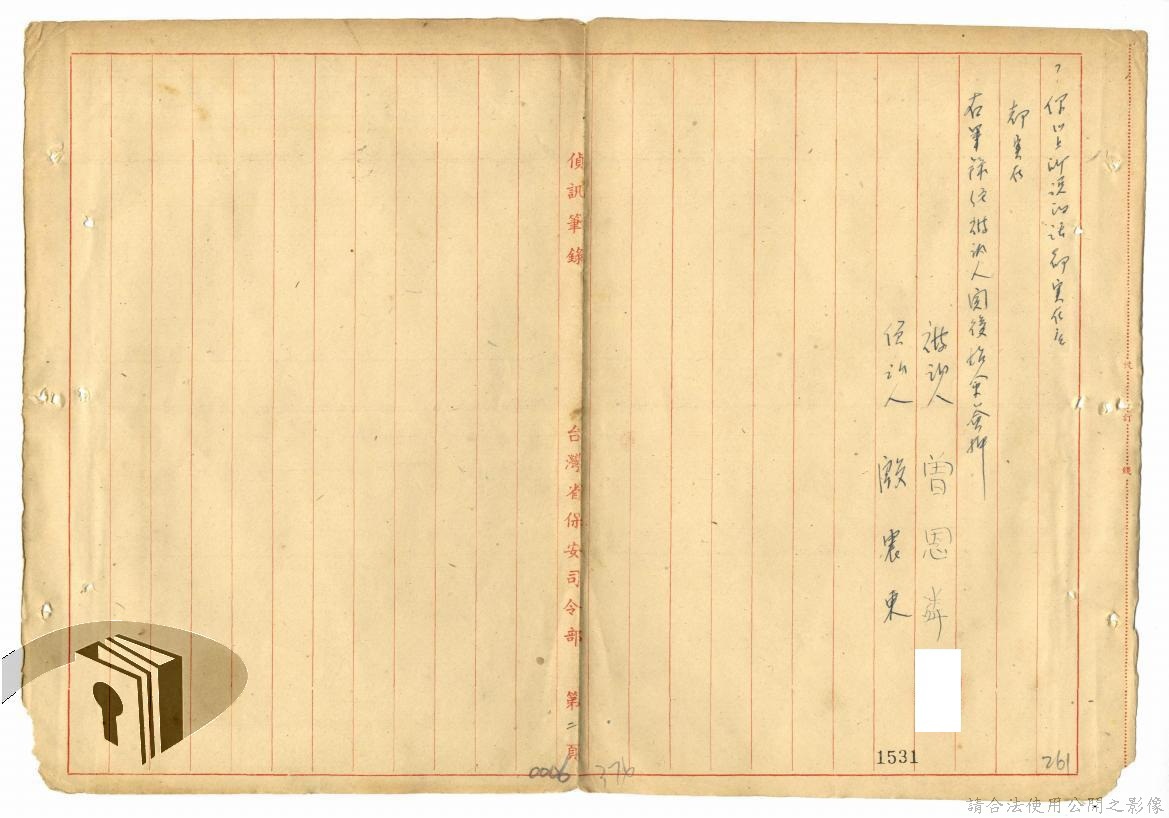 ？你以上所說的話都實在否
都實在
右筆錄經被訊人閱後始命簽押
被訊人 曾恩
偵訊人 殷震東
偵訊筆錄
台灣省保安司令部
第二頁
訂
線
1531
261
0006
376
請合法使用公開之影像